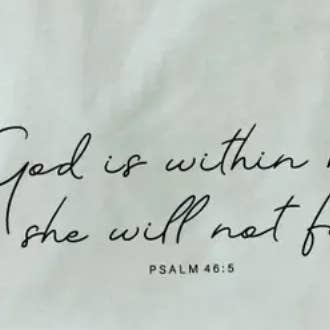 God is within
she will not
PSALM 46:5